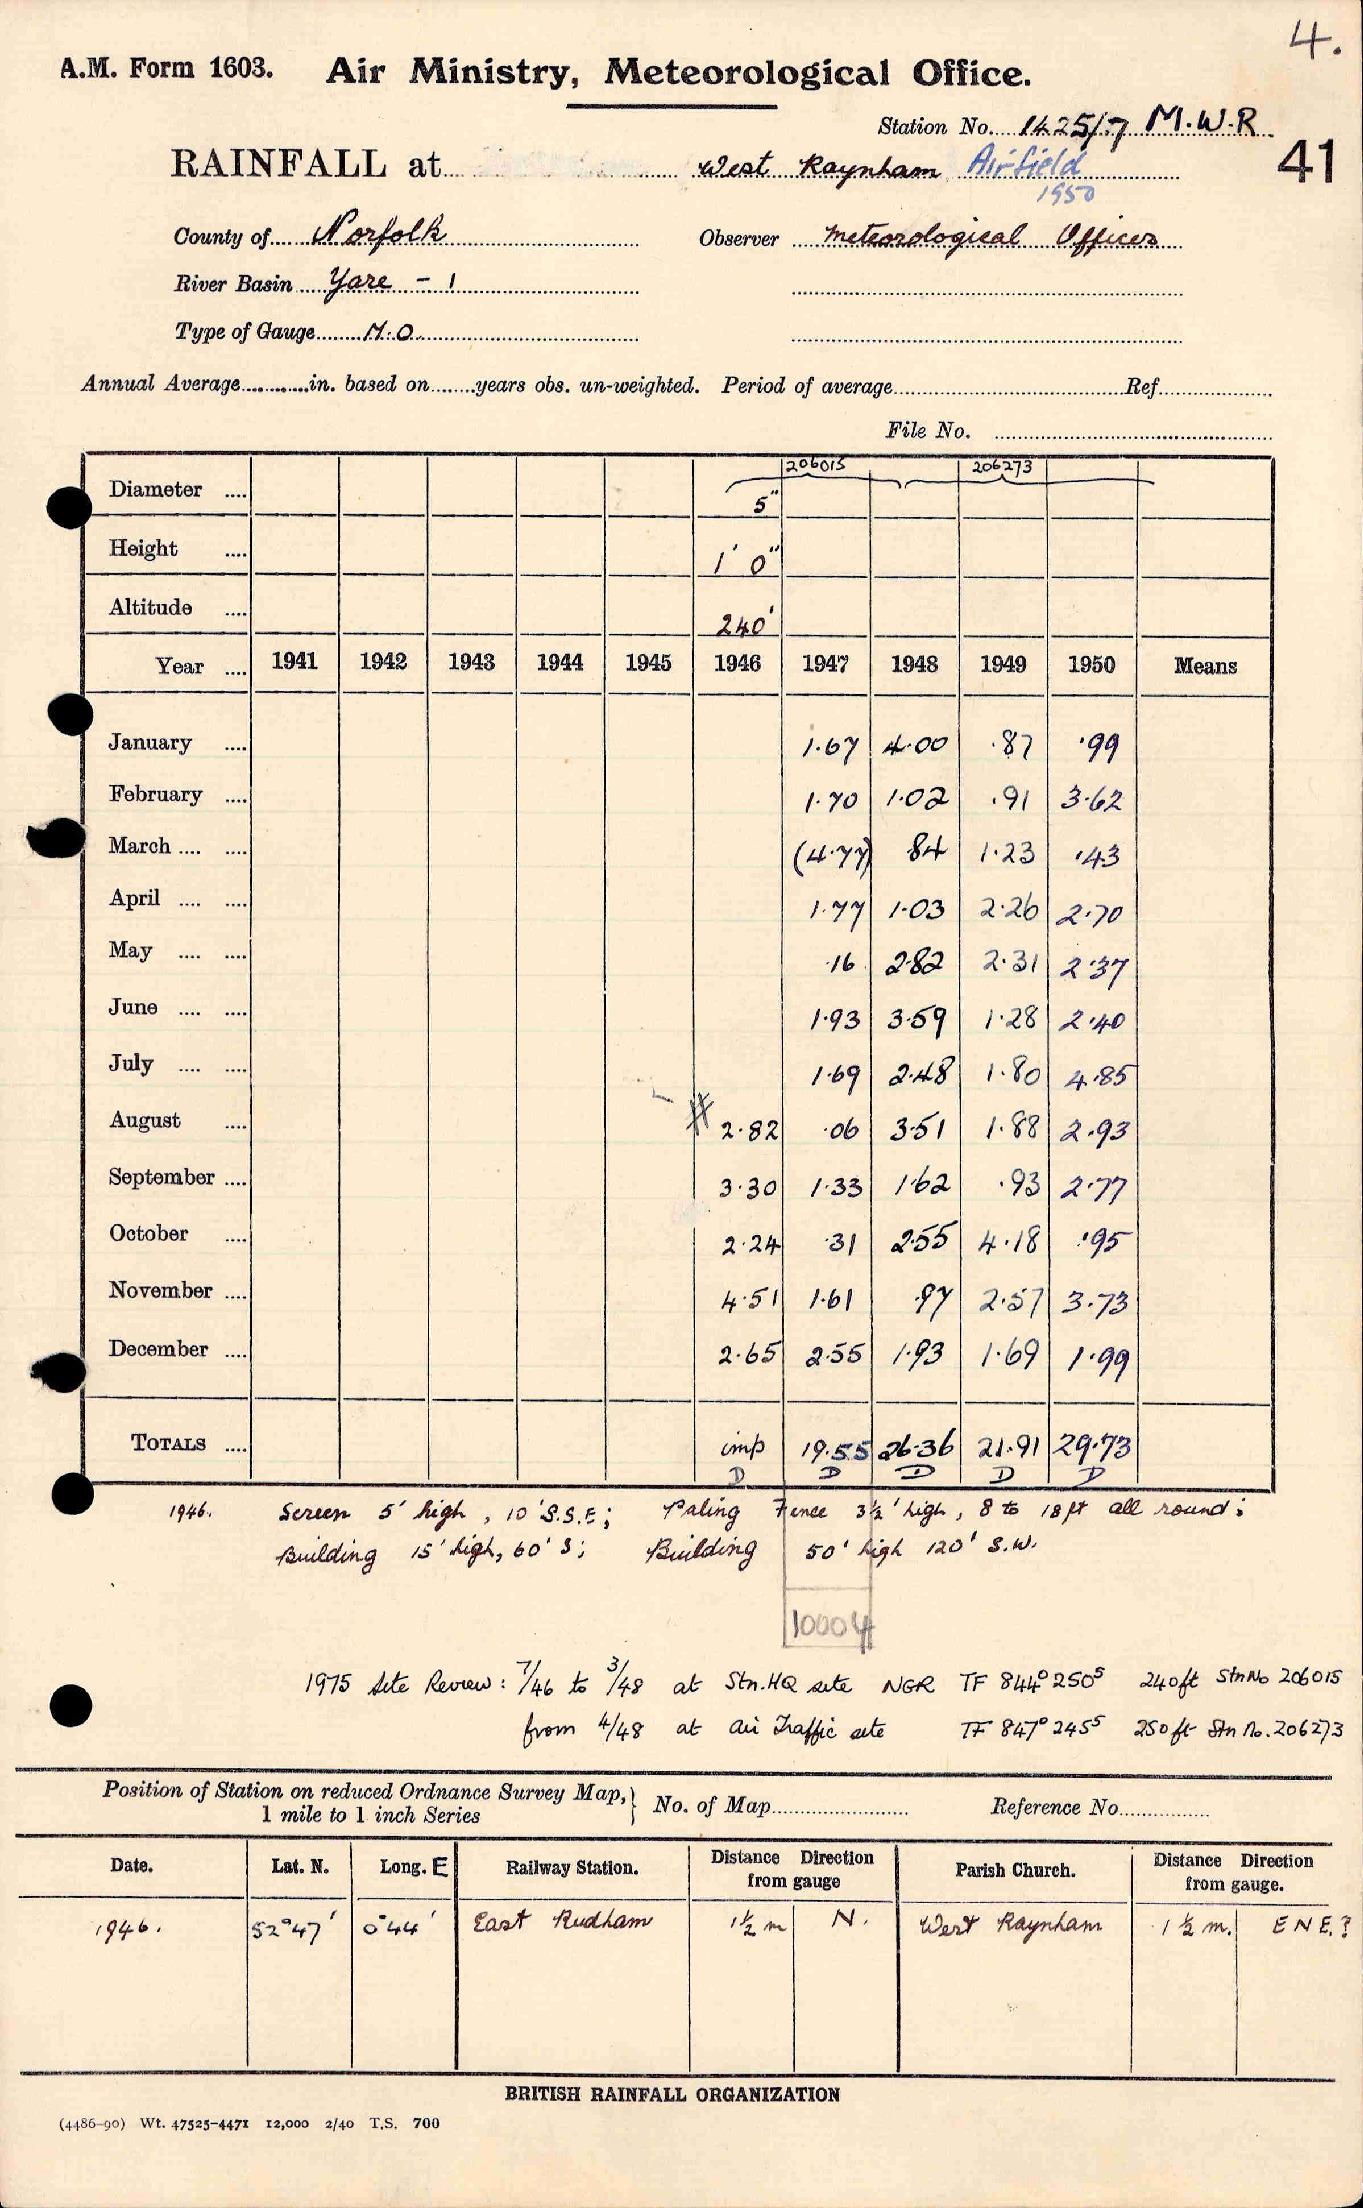 4.
A.M. Form 1603. Air Ministry, Meteorological Office.
Station No. 1425/.7 M.W.R
RAINFALL at West Raynham Airfield 41
1950
County of Norfolk Observer Meteorological Officer
River Basin Yare - 1
Type of Gauge M.O.
Annual Average in. based on years obs. un-weighted. Period of average Ref
File No.
206015 206273
Diameter 5"
Height 1' 0"
Altitude 240'
Year 1941 1942 1943 1944 1945 1946 1947 1948 1949 1950 Means
January 1.67 4.00 .87 .99
February 1.70 1.02 .91 3.62
March (4.77) 84 1.23 .43
April 1.77 1.03 2.26 2.70
May .16 2.82 2.31 2.37
June 1.93 3.59 1.28 2.40
July 1.69 2.48 1.80 4.85
August 2.82 .06 3.51 1.88 2.93
September 3.30 1.33 1.62 .93 2.77
October 2.24 .31 2.55 4.18 .95
November 4.51 1.61 .97 2.57 3.73
December 2.65 2.55 1.93 1.69 1.99
TOTALS imp 19.55 26.36 21.91 29.73
D D D D D
1946. Screen 5' high, 10' S.S.E; Paling Fence 3½' high, 8 to 18 ft all round;
Building 15' high, 60' S; Building 50' high 120' S.W.
10004
1975 Site Review: 7/46 to 3/48 at Stn.HQ site NGR TF 844⁰ 250⁵ 240ft Stn No 206015
from 4/48 at Air Traffic site TF 847⁰ 245⁵ 250ft Stn No. 206273
Position of Station on reduced Ordnance Survey Map, } No. of Map Reference No.
1 mile to 1 inch Series
Date. Lat. N. Long. E Railway Station. Distance Direction from gauge Parish Church. Distance Direction from gauge.
1946. 52°47' 0°44' East Rudham 1½ m N. West Raynham 1½ m. E N E.?
BRITISH RAINFALL ORGANIZATION
(4486-90) Wt. 47525-4471 12,000 2/40 T.S. 700